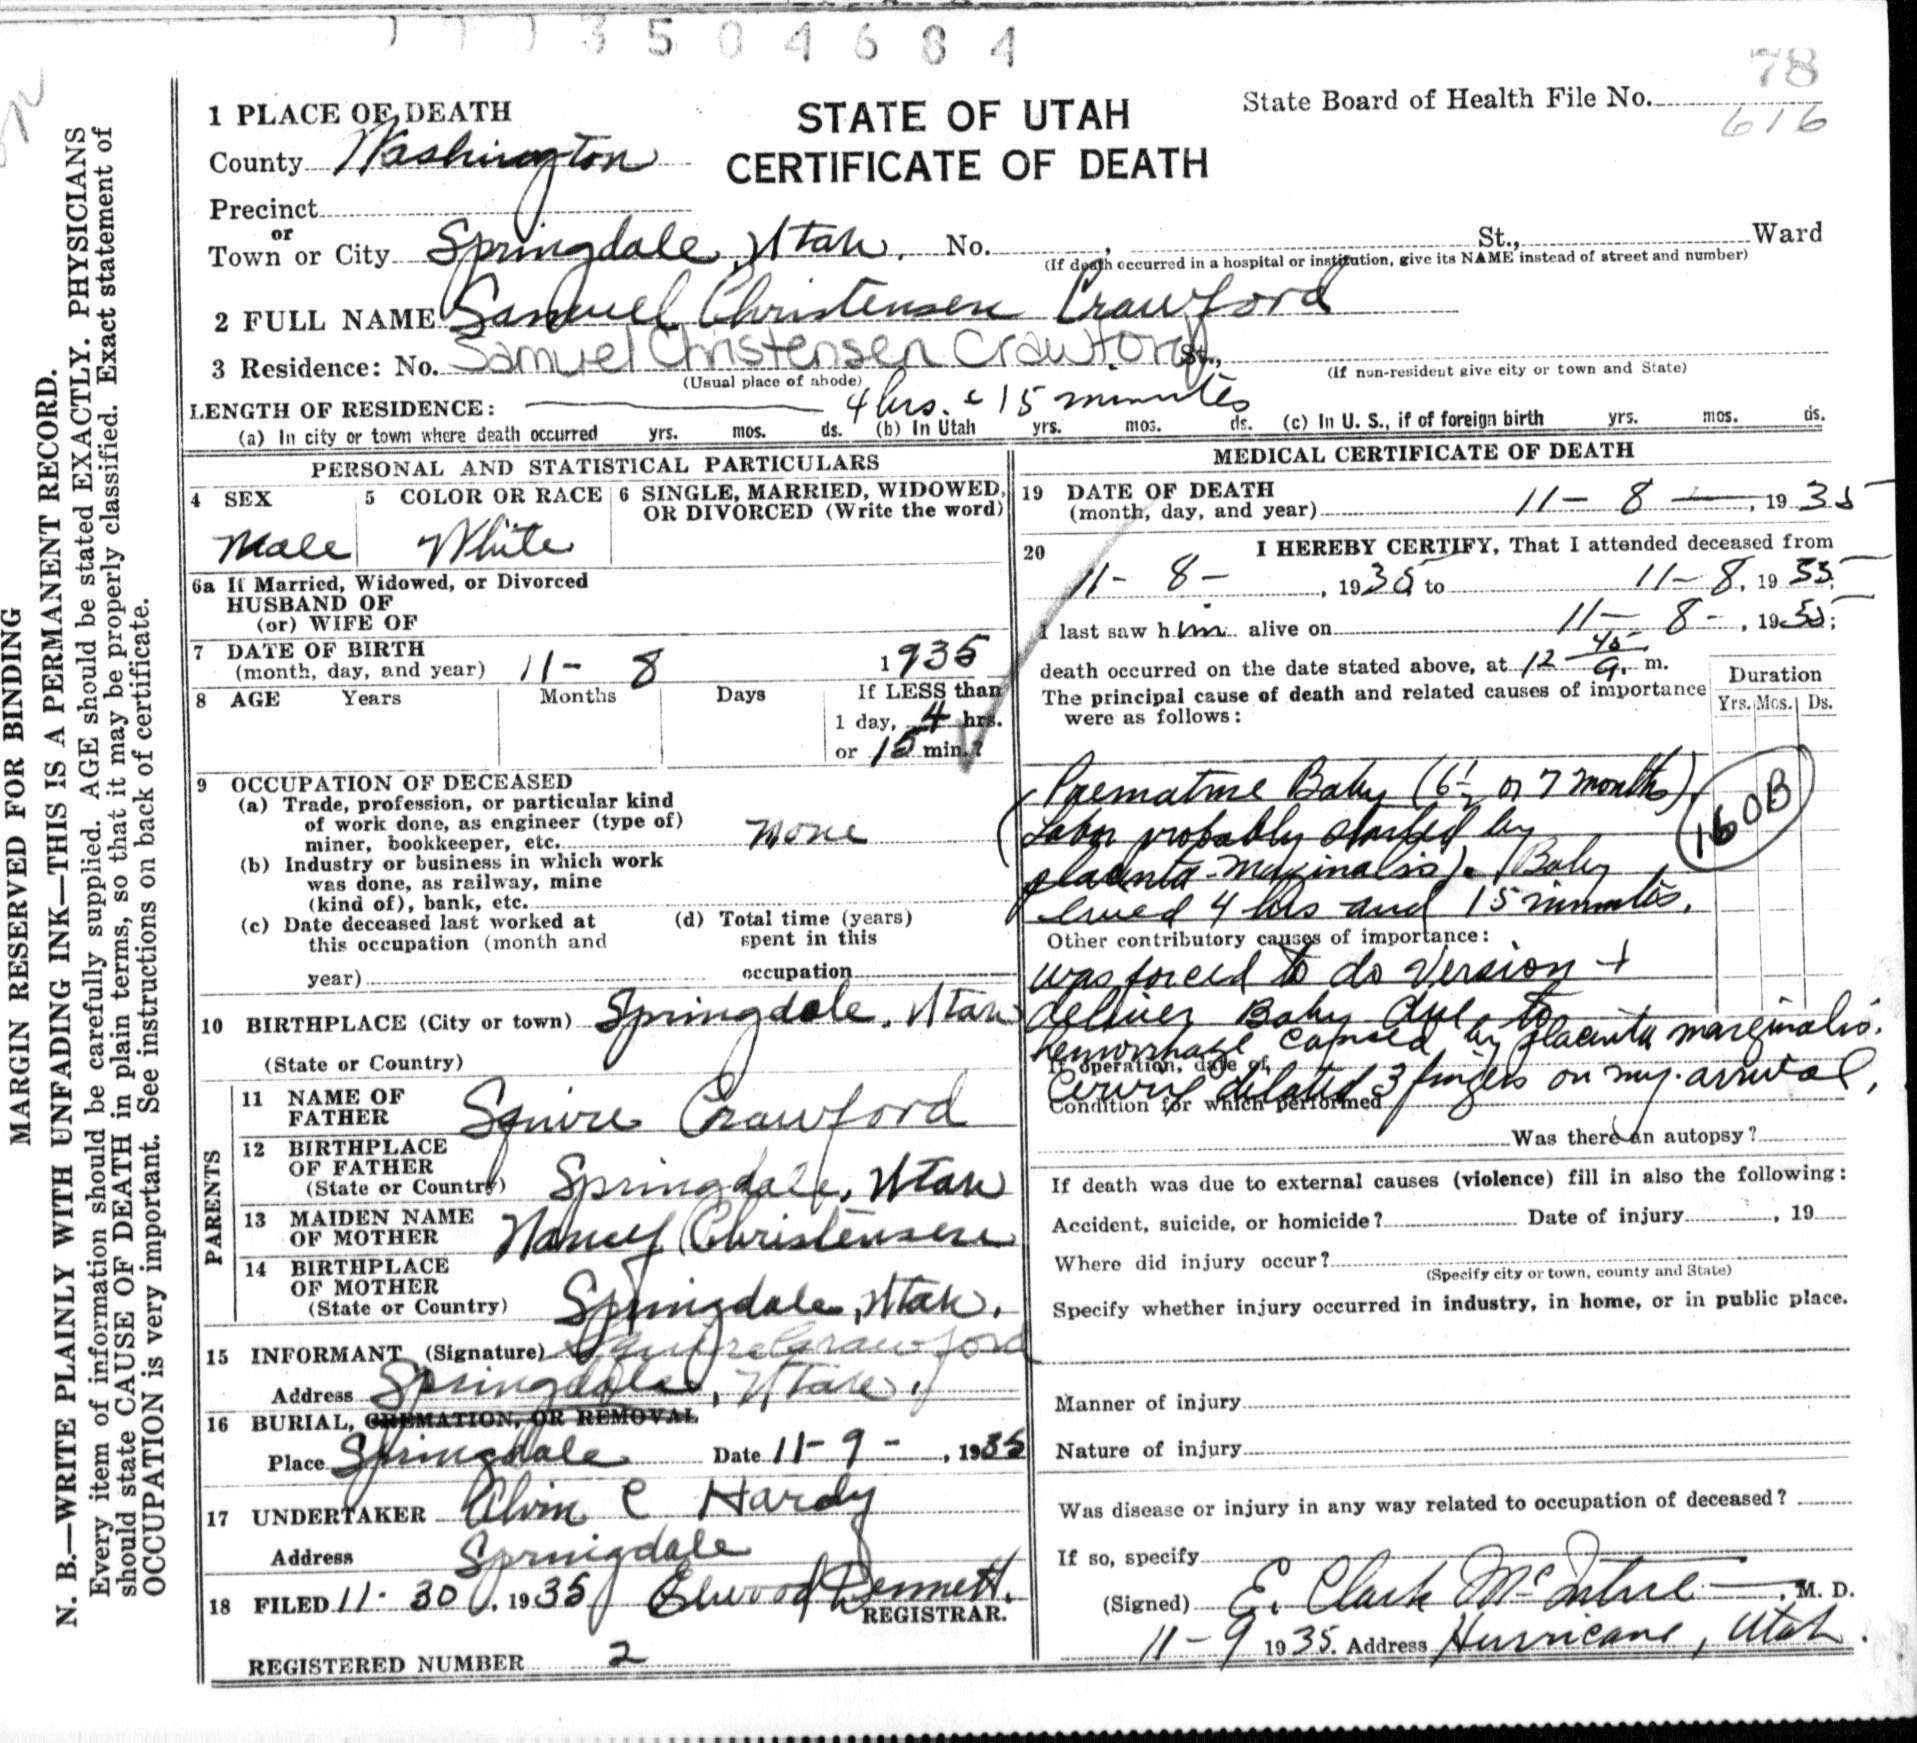 3504684
78
616
1 PLACE OF DEATH
STATE OF UTAH
CERTIFICATE OF DEATH
State Board of Health File No.
County Washington
Precinct
or
Town or City Springdale, Utah. No. , St., Ward
(If death occurred in a hospital or institution, give its NAME instead of street and number)
2 FULL NAME Samuel Christensen Crawford
3 Residence: No. Samuel Christensen Crawford St.,
(Usual place of abode) (If non-resident give city or town and State)
LENGTH OF RESIDENCE: 4 hrs. & 15 minutes
(a) In city or town where death occurred yrs. mos. ds. (b) In Utah yrs. mos. ds. (c) In U. S., if of foreign birth yrs. mos. ds.
PERSONAL AND STATISTICAL PARTICULARS
4 SEX
Male
5 COLOR OR RACE
White
6 SINGLE, MARRIED, WIDOWED, OR DIVORCED (Write the word)
6a If Married, Widowed, or Divorced
HUSBAND OF
(or) WIFE OF
7 DATE OF BIRTH
(month, day, and year) 11 - 8 1935
8 AGE Years Months Days If LESS than
1 day, 4 hrs.
or 15 min.?
9 OCCUPATION OF DECEASED
(a) Trade, profession, or particular kind
of work done, as engineer (type of)
miner, bookkeeper, etc. None
(b) Industry or business in which work
was done, as railway, mine
(kind of), bank, etc.
(c) Date deceased last worked at
this occupation (month and
year)
(d) Total time (years)
spent in this
occupation
10 BIRTHPLACE (City or town) Springdale, Utah
(State or Country)
PARENTS
11 NAME OF
FATHER Squire Crawford
12 BIRTHPLACE
OF FATHER
(State or Country) Springdale, Utah
13 MAIDEN NAME
OF MOTHER Nancy Christensen
14 BIRTHPLACE
OF MOTHER
(State or Country) Springdale, Utah.
15 INFORMANT (Signature) Squire Crawford
Address Springdale, Utah.
16 BURIAL, CREMATION, OR REMOVAL
Place Springdale Date 11 - 9 - , 1935
17 UNDERTAKER Alvin C Hardy
Address Springdale
18 FILED 11 - 30, 1935 Elwood Dennett.
REGISTRAR.
REGISTERED NUMBER 2
MEDICAL CERTIFICATE OF DEATH
19 DATE OF DEATH
(month, day, and year) 11 - 8 , 1935
20 I HEREBY CERTIFY, That I attended deceased from
11 - 8 - , 1935 to 11 - 8, 1935;
I last saw him alive on 11 - 8 - , 1935;
death occurred on the date stated above, at 12 45 a. m.
The principal cause of death and related causes of importance
were as follows:
Duration
Yrs. Mos. Ds.
Premature Baby (6½ or 7 months)
160B
Labor probably started by
placenta-marginalis). (Baby
lived 4 hrs and 15 minutes.
Other contributory causes of importance:
was forced to do version +
deliver Baby due to
hemorrhage caused by placenta marginalis.
If operation, date of,
Cervix dilated 3 fingers on my arrival,
Condition for which performed
Was there an autopsy?
If death was due to external causes (violence) fill in also the following:
Accident, suicide, or homicide? Date of injury , 19
Where did injury occur?
(Specify city or town, county and State)
Specify whether injury occurred in industry, in home, or in public place.
Manner of injury
Nature of injury
Was disease or injury in any way related to occupation of deceased?
If so, specify
(Signed) E. Clark McIntire , M. D.
11 - 9 1935. Address Hurricane, Utah.
MARGIN RESERVED FOR BINDING
N. B.—WRITE PLAINLY WITH UNFADING INK—THIS IS A PERMANENT RECORD.
Every item of information should be carefully supplied. AGE should be stated EXACTLY. PHYSICIANS
should state CAUSE OF DEATH in plain terms, so that it may be properly classified. Exact statement of
OCCUPATION is very important. See instructions on back of certificate.